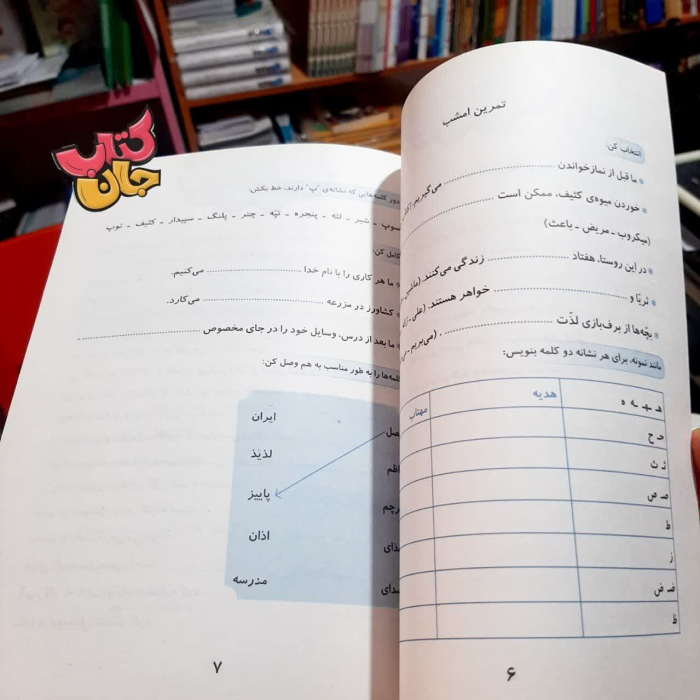 کتاب
جان
تمرین امشب
انتخاب کن:
* ما قبل از نمازخواندن .................... می‌گیریم.
* خوردن میوه‌ی کثیف، ممکن است ....................
(میکروب ـ مریض ـ باعث)
* در این روستا، هفتاد .................... زندگی می‌کنند.
* ثریّا و .................... خواهر هستند. (علی ـ
* بچّه‌ها از برف‌بازی لذّت .................... . (می‌بریم ـ
مانند نمونه، برای هر نشانه دو کلمه بنویس:
هـ ـهـ ـه ه هدیه مهتاب
حـ ح
ثـ ث
صـ ص
ط
ز
ضـ ض
ظ
۶
دور کلمه‌هایی که نشانه‌ی "پ" دارند، خط بکش:
سوپ ـ شیر ـ لثه ـ پنجره ـ تپّه ـ چتر ـ پلنگ ـ سپیدار ـ کثیف ـ توپ
کامل کن:
* ما هر کاری را با نام خدا .................... می‌کنیم.
* کشاورز در مزرعه .................... می‌کارد.
* ما بعد از درس، وسایل خود را در جای مخصوص ....................
کلمه‌ها را به طور مناسب به هم وصل کن:
ایران
لذیذ
پاییز
اذان
مدرسه
۷